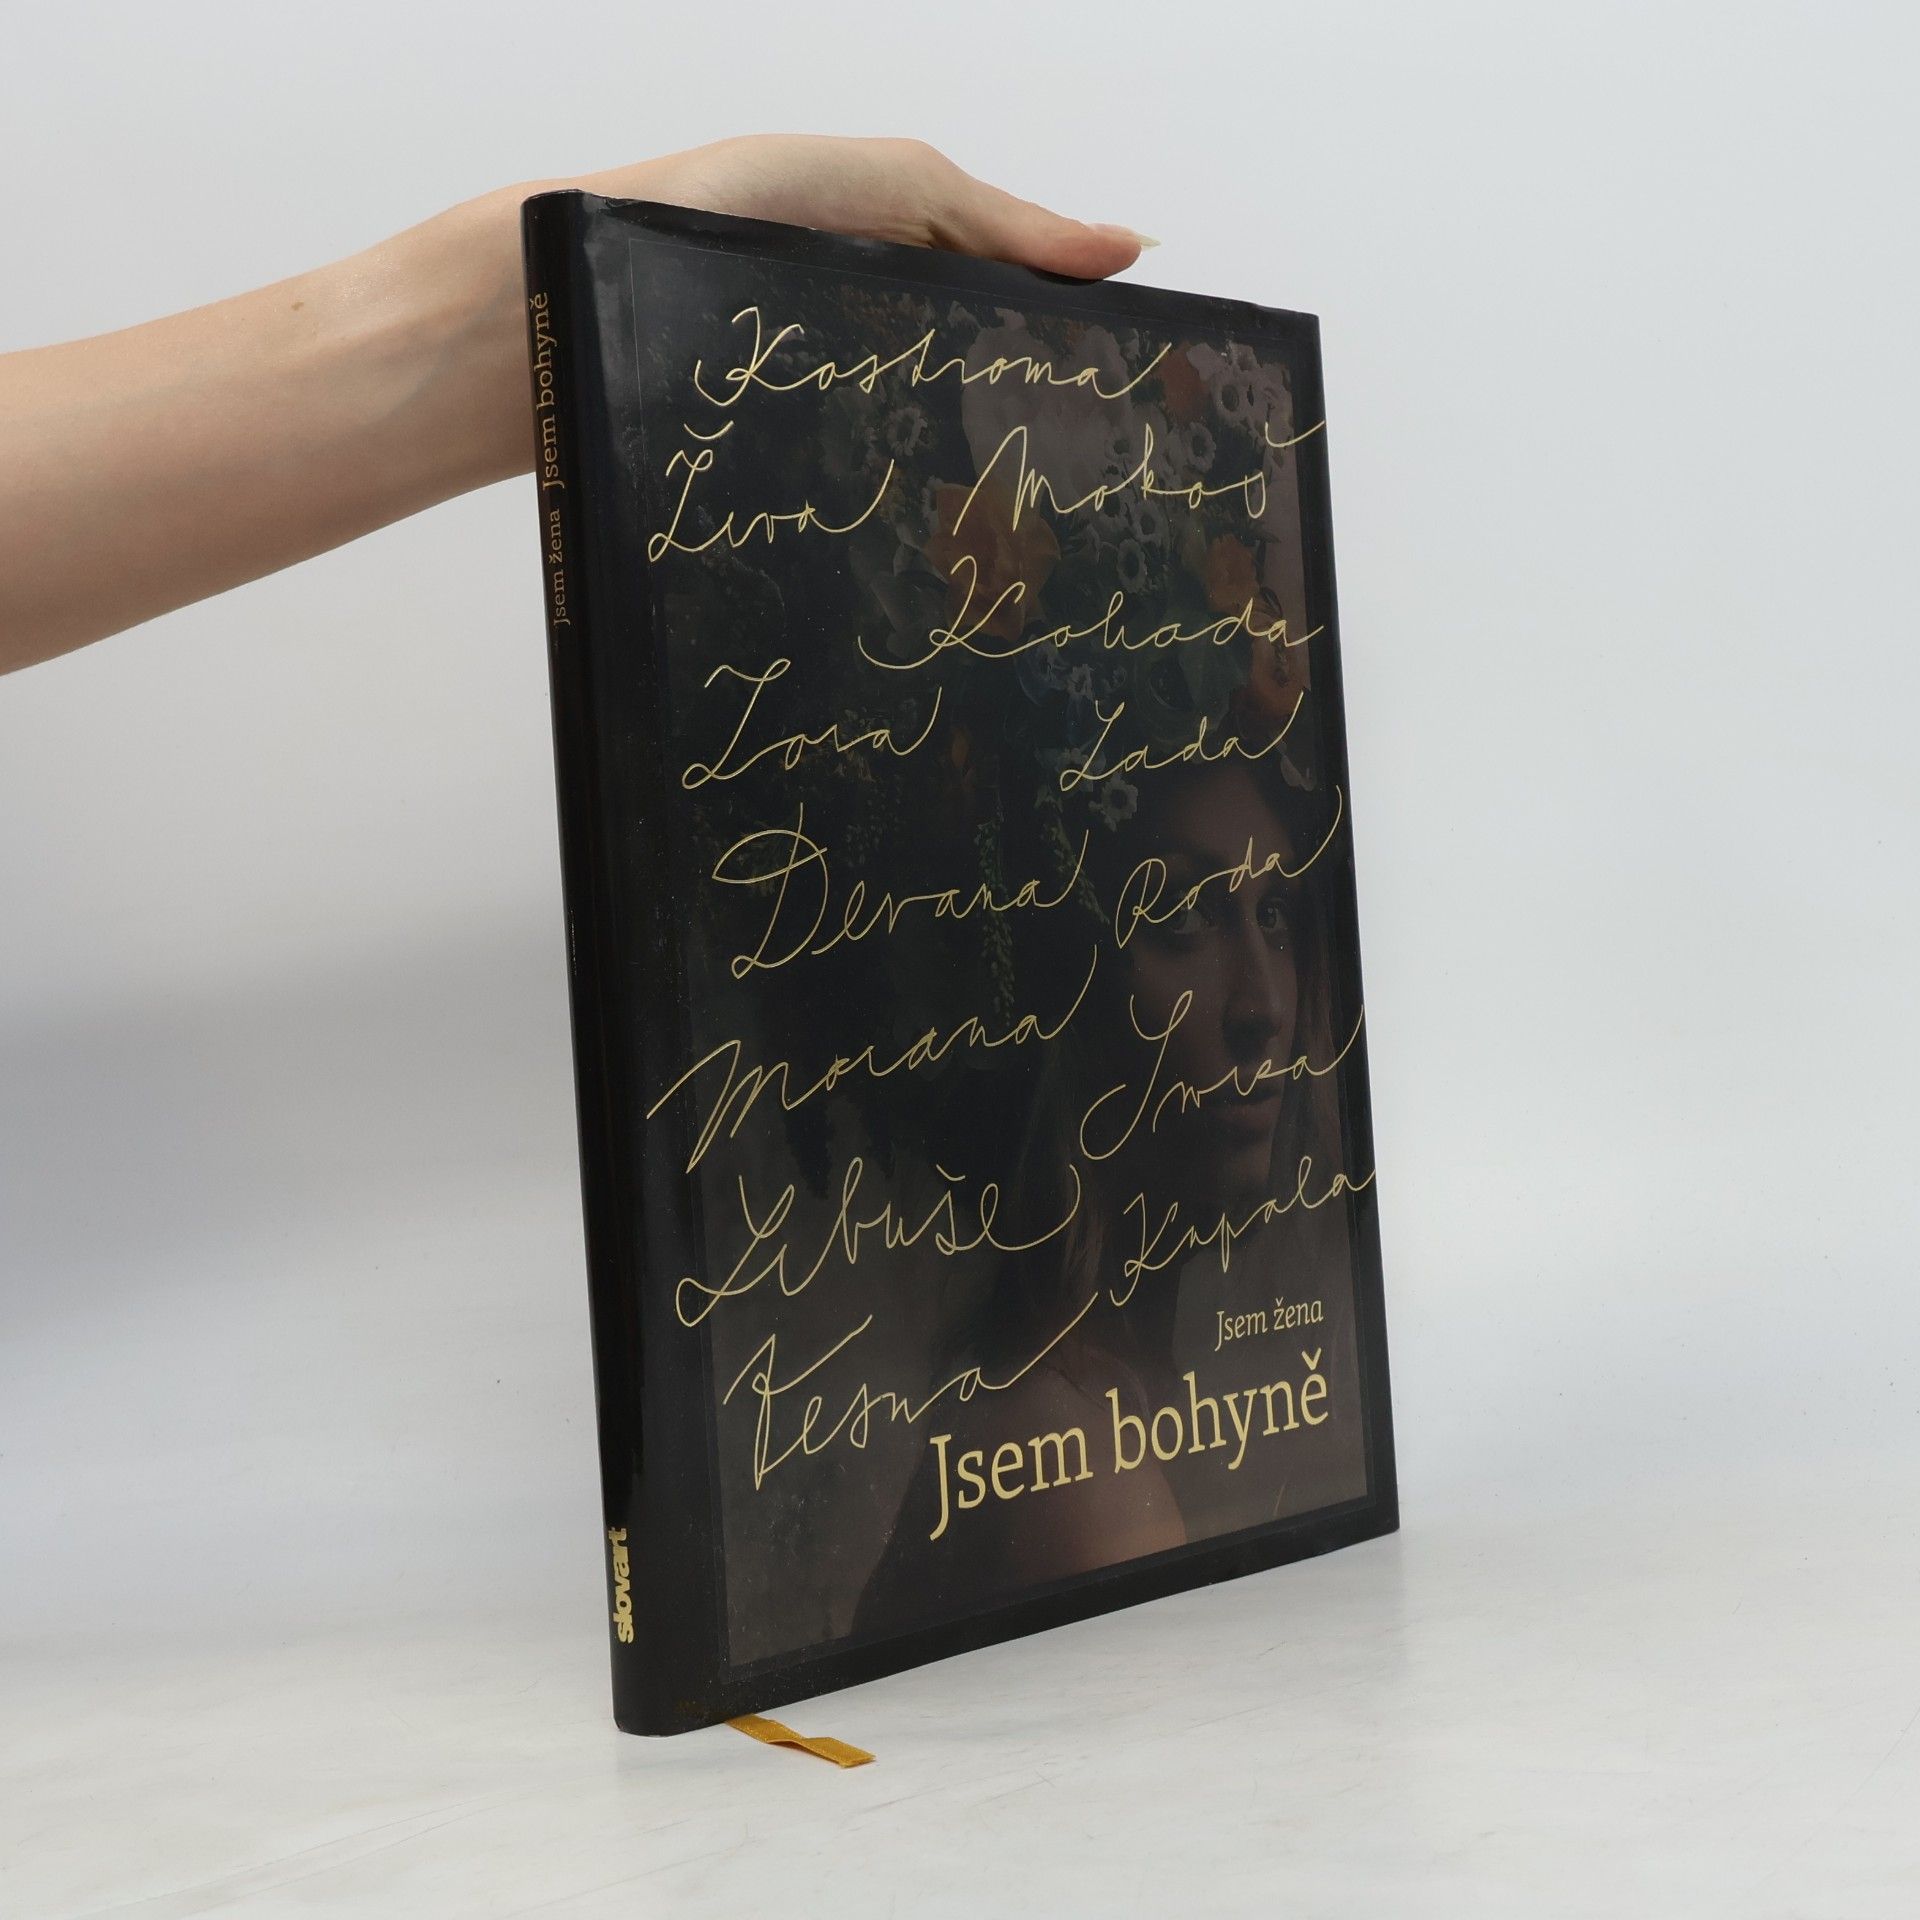 Jsem žena Jsem bohyně
slovart
Kostroma
Živa Mokoš
Koliada
Zora Lada
Devana Roda
Morana Smrza
Libuše Kupala
Vesna
Jsem žena
Jsem bohyně